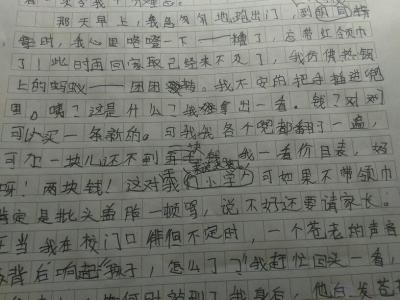 那天早上，我急匆匆地跑出门，到
时，我心里咯噔一下——糟了，忘带红领巾
了！此时再回家取已经来不及了，我仿佛热锅
上的蚂蚁——团团转。我不安的把手插进兜
里。咦？这是什么？我拿出一看。钱？对对
可以买一条新的。可我找各个兜都翻了一遍，
可加一块儿还不到五块钱，我一看价目表，好
呀！两块钱！这对我们小学 可如果不带领巾
肯定是批头盖脸一顿骂，说不好还要请家长。
正当我在校门口徘徊不定时，一个苍老的声音
从背后响起"孩子，怎么了？"我赶忙回头一看，
我身后，他白发苍苍